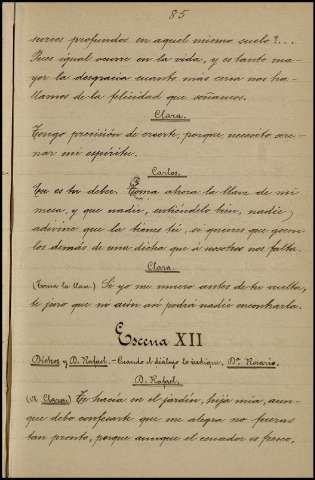 85
surcos profundos en aquel mismo suelo?...
Pues igual ocurre en la vida, y es tanto ma-
yor la desgracia cuanto más cerca nos ha-
llamos de la felicidad que soñamos.
Clara.
Tengo precisión de creerte, porque necesito sere-
nar mi espíritu.
Carlos.
Ese es tu deber. Toma ahora la llave de mi
mesa, y que nadie, entiéndelo bien, nadie
adivine que la tienes tú, si quieres que gocen
los demás de una dicha que á nosotros nos falta.
Clara.
(Toma la llave.) Si yo me muero antes de tu vuelta,
te juro que no aún así podrá nadie encontrarla.
Escena XII
Dichos y D. Rafael. - Cuando el diálogo lo indique, Dª. Rosario.
D. Rafael.
(A Clara.) Te hacía en el jardín, hija mía, aun-
que debo confesarte que me alegra no fueras
tan pronto, porque aunque el cenador es fresco,